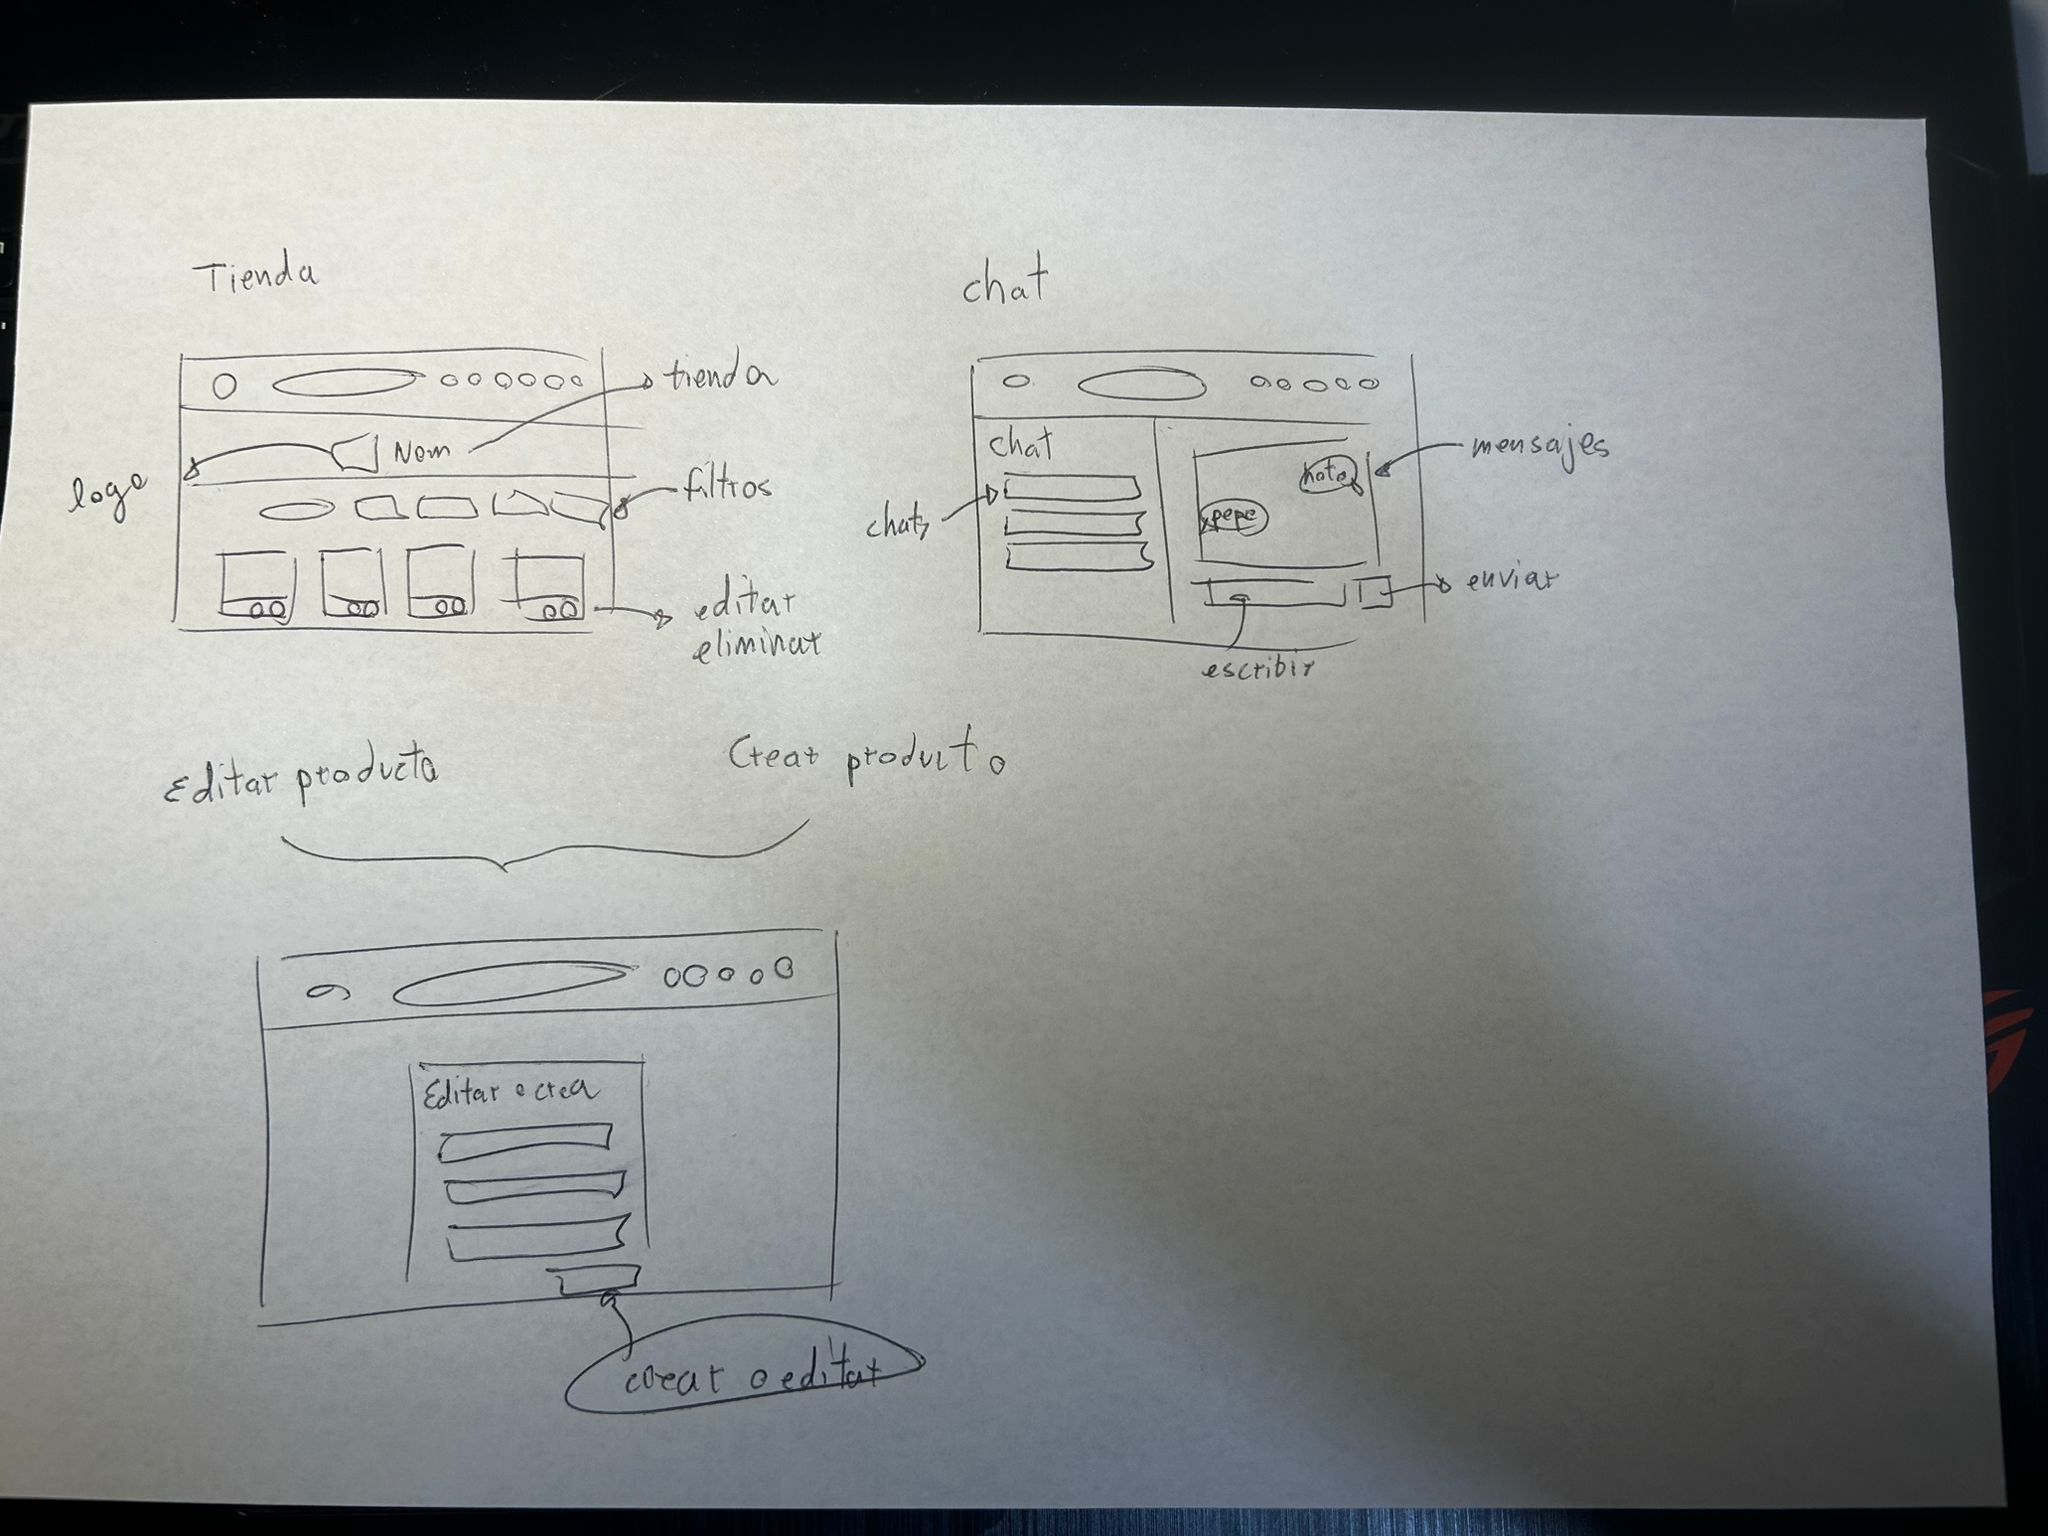 Tienda
tienda
Nom
logo
filtros
editar
eliminar
chat
chat
mensajes
chats
pepe
enviar
escribir
Editar producto
Crear producto
Editar o crea
crear o editar